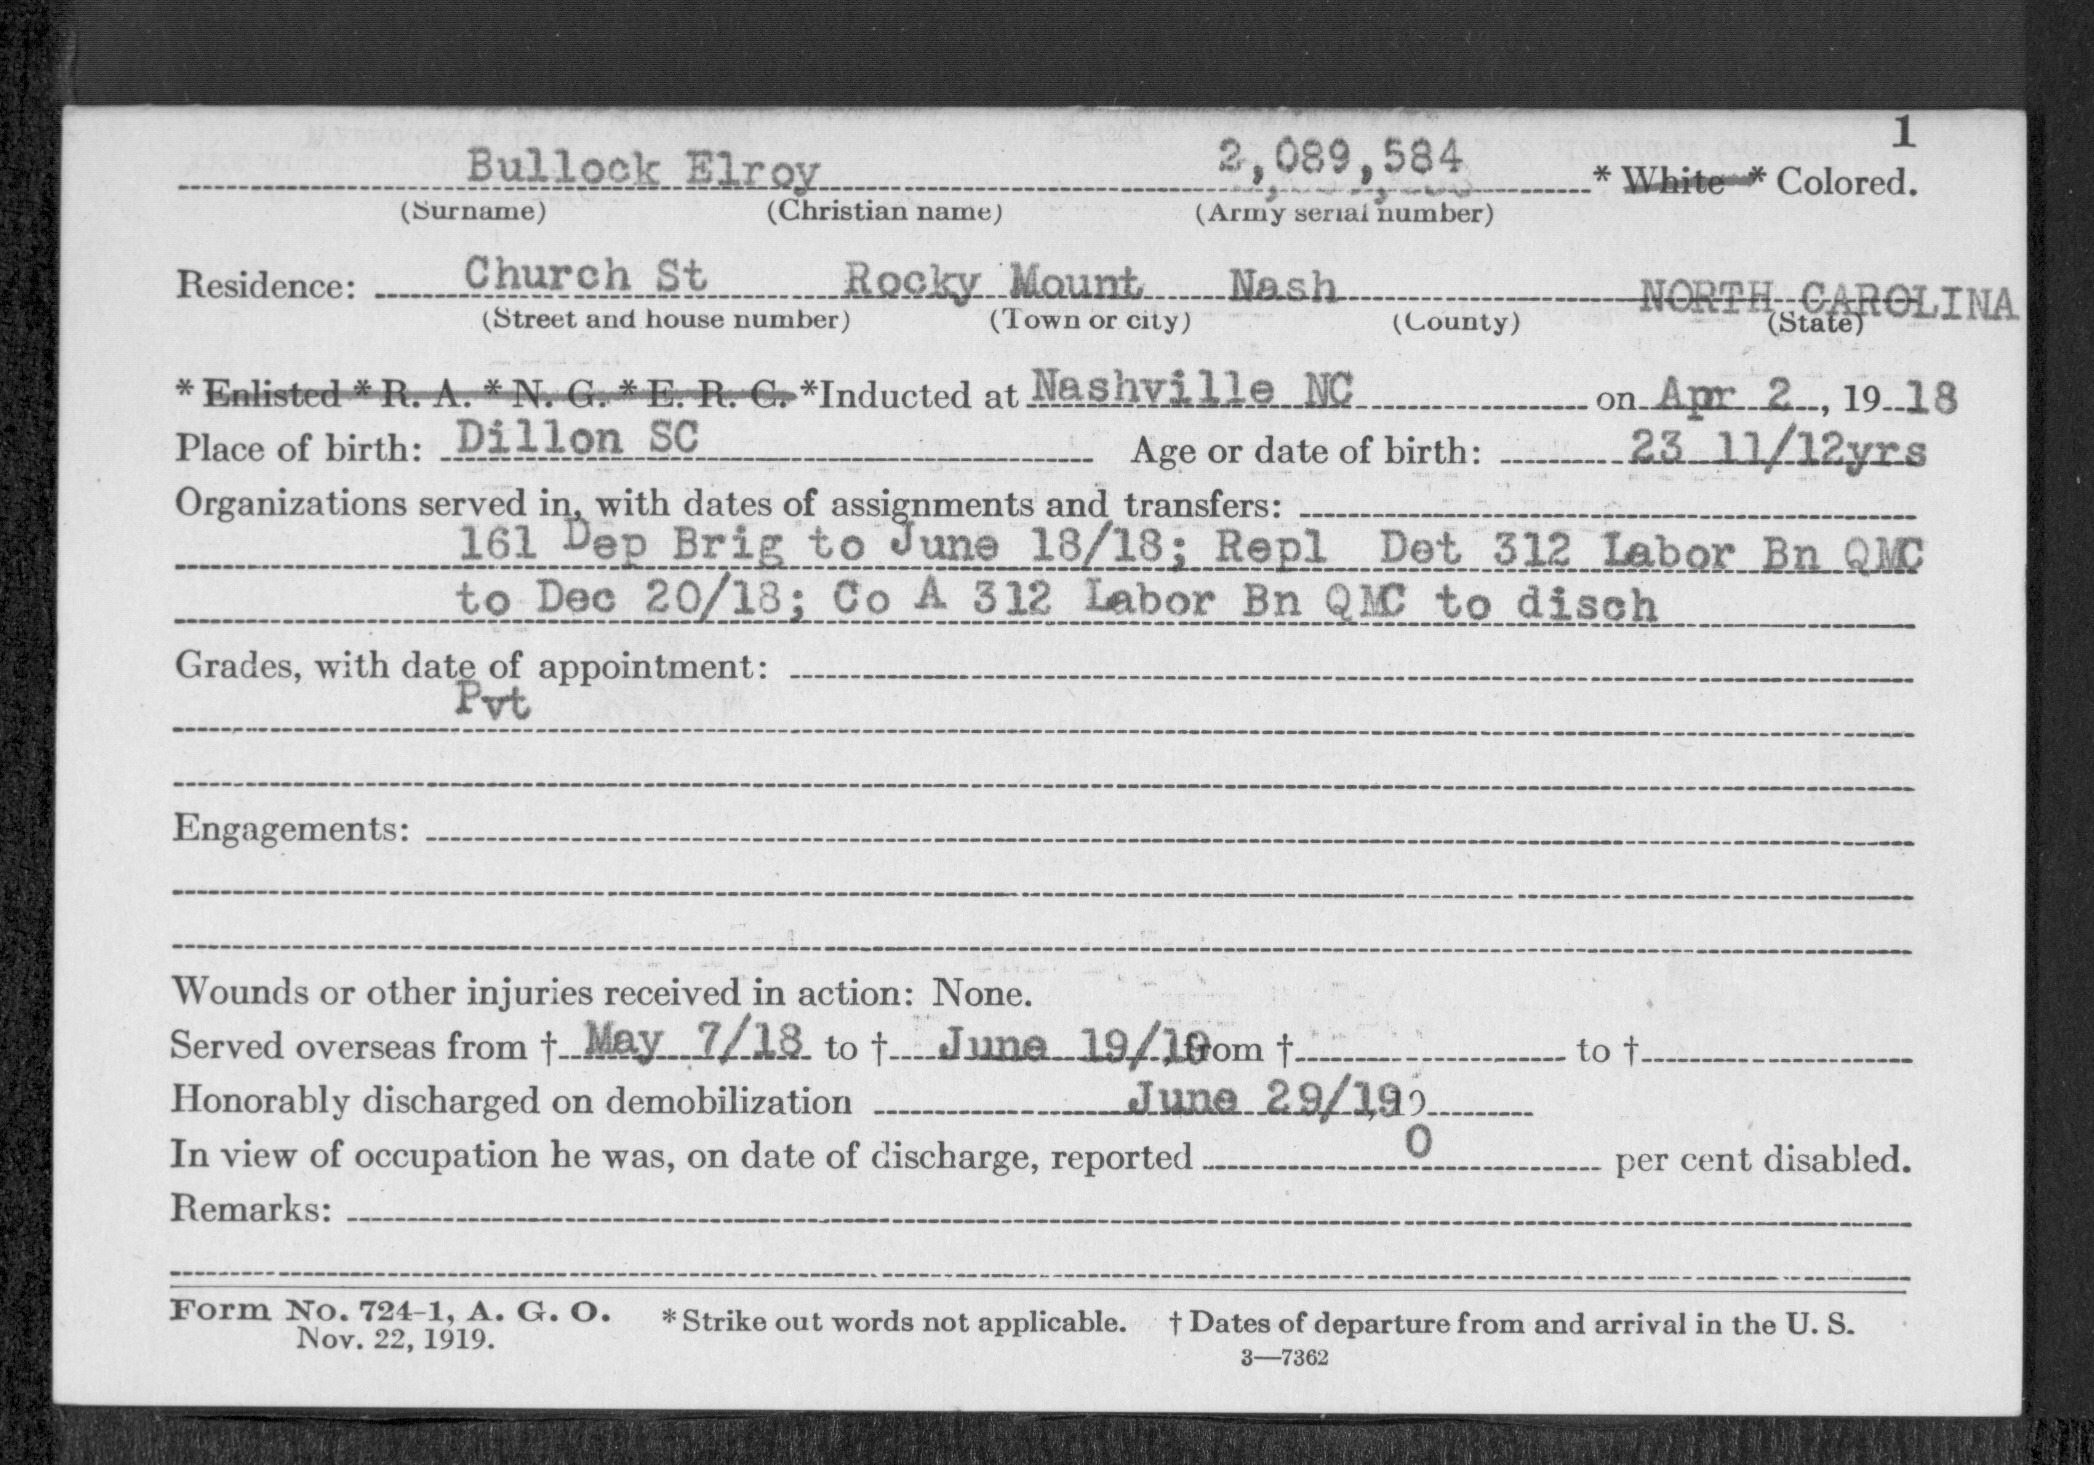 1
Bullock Elroy 2,089,584 * White * Colored.
(Surname) (Christian name) (Army serial number)
Residence: Church St Rocky Mount Nash NORTH CAROLINA
(Street and house number) (Town or city) (County) (State)
* Enlisted * R. A. * N. G. * E. R. C. *Inducted at Nashville NC on Apr 2, 19 18
Place of birth: Dillon SC Age or date of birth: 23 11/12yrs
Organizations served in, with dates of assignments and transfers:
161 Dep Brig to June 18/18; Repl Det 312 Labor Bn QMC
to Dec 20/18; Co A 312 Labor Bn QMC to disch
Grades, with date of appointment:
Pvt
Engagements:
Wounds or other injuries received in action: None.
Served overseas from † May 7/18 to † June 19/19 from † to †
Honorably discharged on demobilization June 29/19, 19
In view of occupation he was, on date of discharge, reported 0 per cent disabled.
Remarks:
Form No. 724-1, A. G. O. * Strike out words not applicable. † Dates of departure from and arrival in the U. S.
Nov. 22, 1919.
3—7362